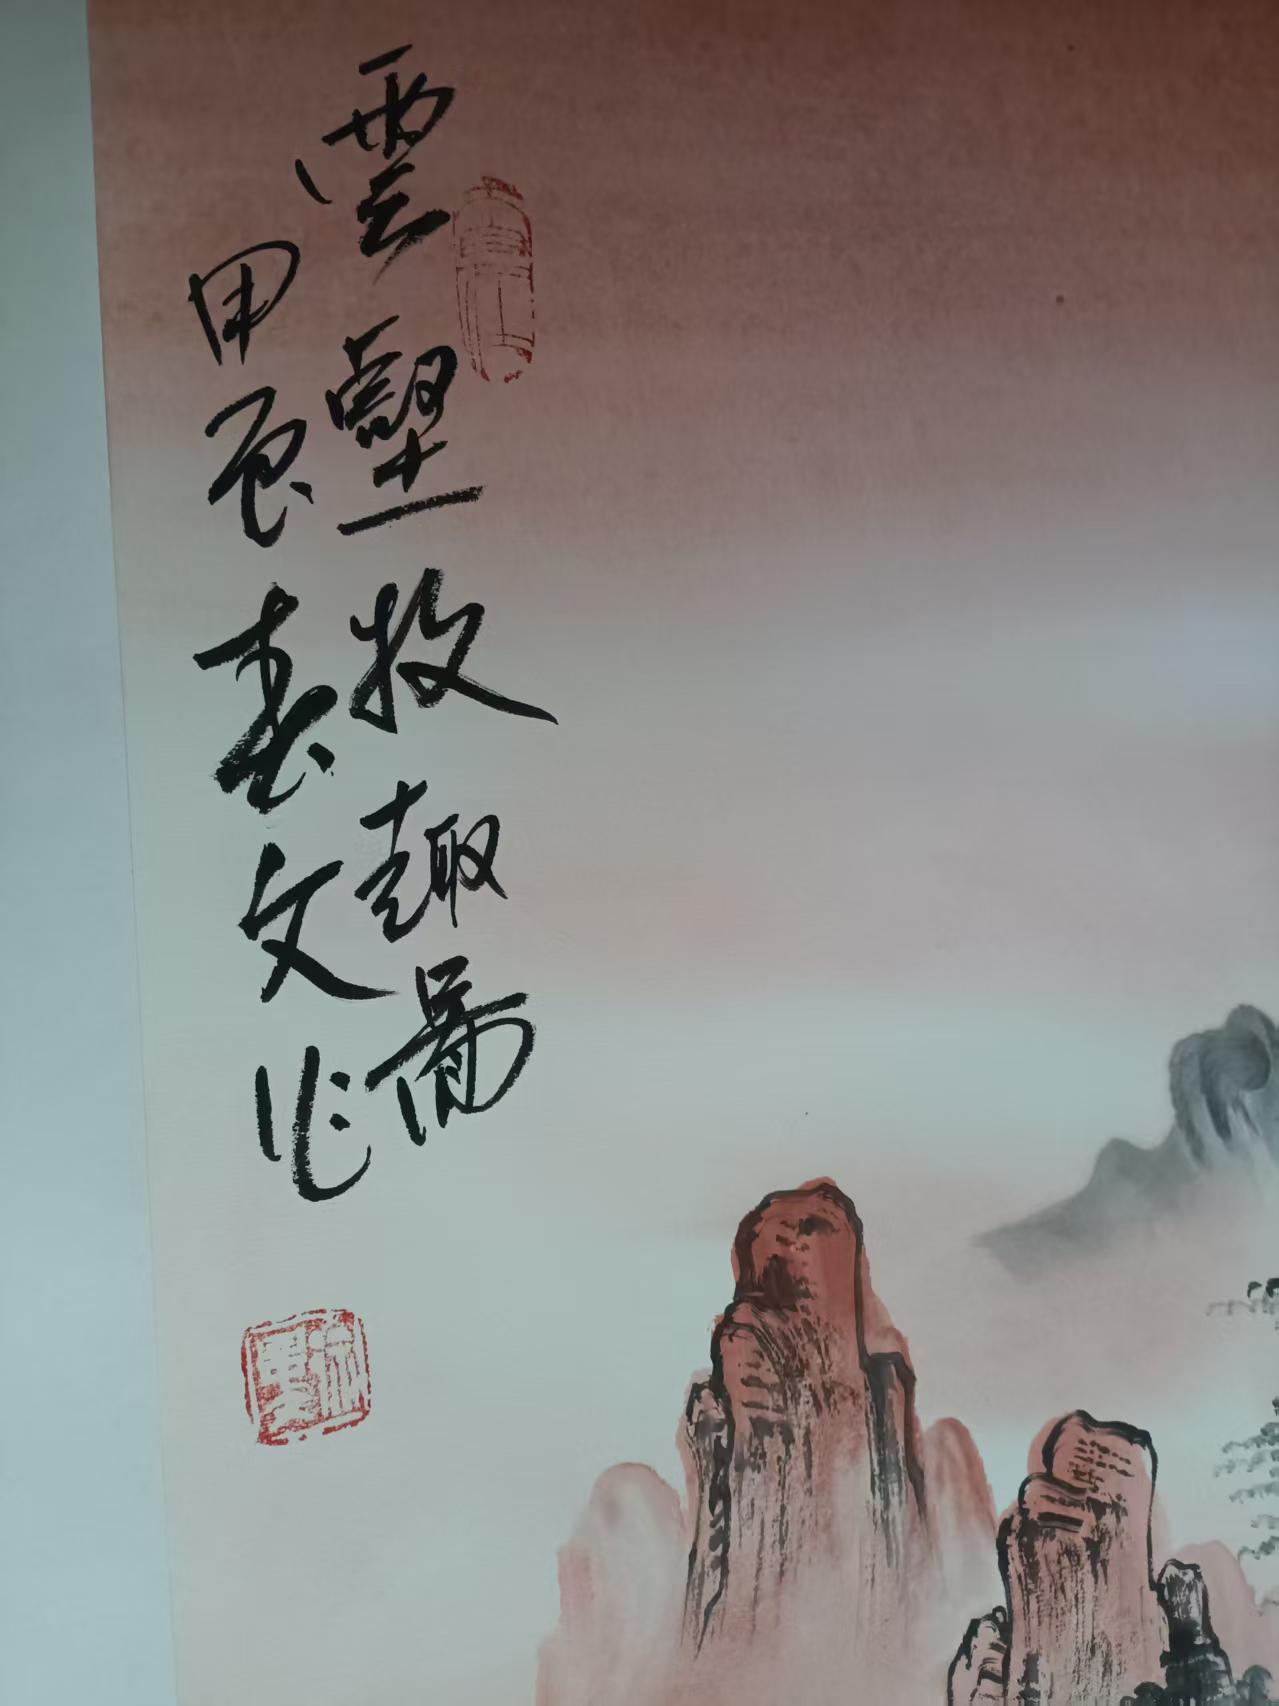 雲壑牧趣圖
甲辰春文作